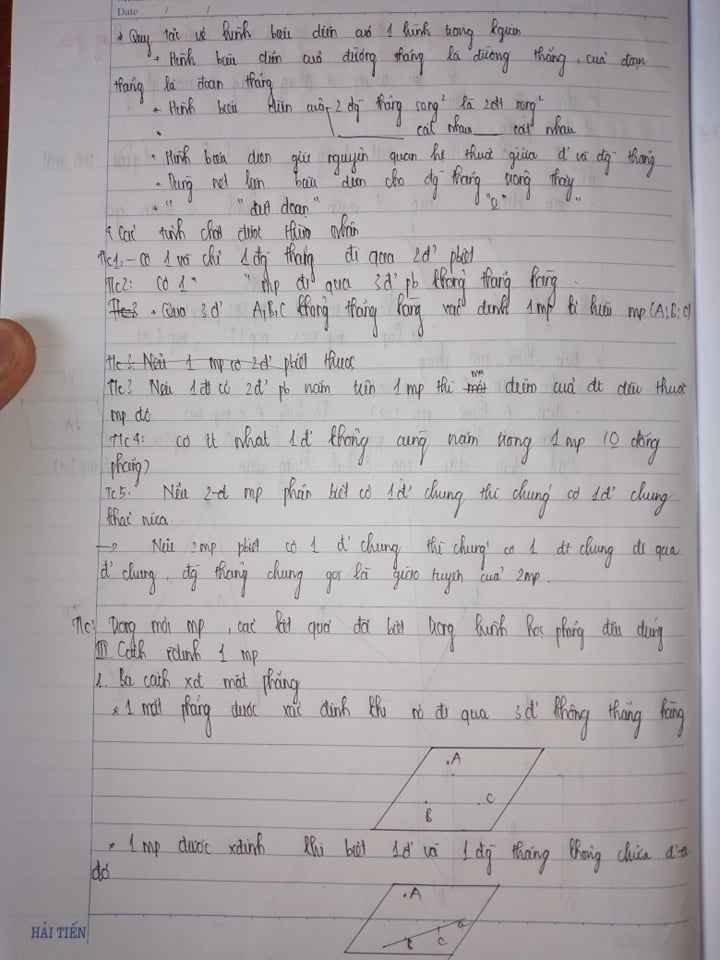 Date / /
* Quy tắc vẽ hình biểu diễn của 1 hình trong kgian
+ Hình biểu diễn của đường thẳng là đường thẳng, của đoạn
thẳng là đoạn thẳng
+ Hình biểu diễn của 2 đg thẳng song² là 2đt song²
cắt nhau cắt nhau
• Hình biểu diễn giữ nguyên quan hệ thuộc giữa đ' và đg thẳng
• Dùng nét liền biểu diễn cho đg thẳng trông thấy
• " " đứt đoạn " "O" "
* Các tính chất được thừa nhận
Tc1: - Có 1 và chỉ 1 đg thẳng đi qua 2đ' pbiệt
Tc2: Có 1 " " mp đi qua 3đ' pb không thẳng hàng.
Tc3 • Qua 3đ' A;B;C không thẳng hàng xác định 1mp kí hiệu mp(A;B;C)
Tc3: Nếu 1 mp có 2đ' pbiệt thuộc
Tc3 Nếu 1đt có 2đ' pb nằm trên 1mp thì mọi điểm của đt đều thuộc
mp đó
Tc4: có ít nhất 1đ' không cùng nằm trong 1mp (O đồng
phẳng)
Tc5. Nếu 2 mp phân biệt có 1đ' chung thì chúng có 1đ' chung
khác nữa.
→ Nếu 2mp pbiệt có 1 đ' chung thì chúng có 1 đt chung đi qua
đ' chung, đg thẳng chung gọi là giao tuyến của 2mp.
Tc: Trong mỗi mp, các kết quả đã biết trong hình học phẳng đều đúng
III Cách xđịnh 1 mp
1. Ba cách xđ mặt phẳng
* 1 mặt phẳng được xác định khi nó đi qua 3đ' không thẳng hàng
A
B C
* 1 mp được xđịnh khi biết 1đ' và 1 đg thẳng không chứa đ'
đó
A
C
HẢI TIẾN